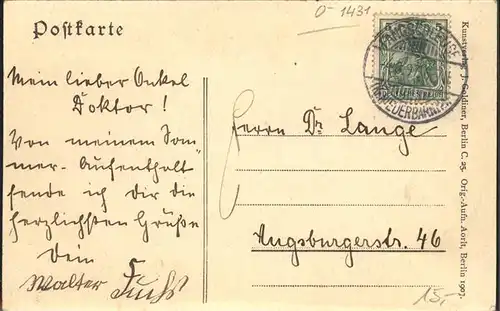 0-1431
Postkarte
Mein lieber Onkel
Doktor!
Von meinem Som-
mer-Aufenthalt
sende ich dir die
herzlichsten Grüße
Dein
Walter Fuchs
Herrn Dr Lange
Augsburgerstr. 46
15,-
Kunstverlag J. Goldiner, Berlin C. 25. Orig.-Aufn. Aorit, Berlin 1907.